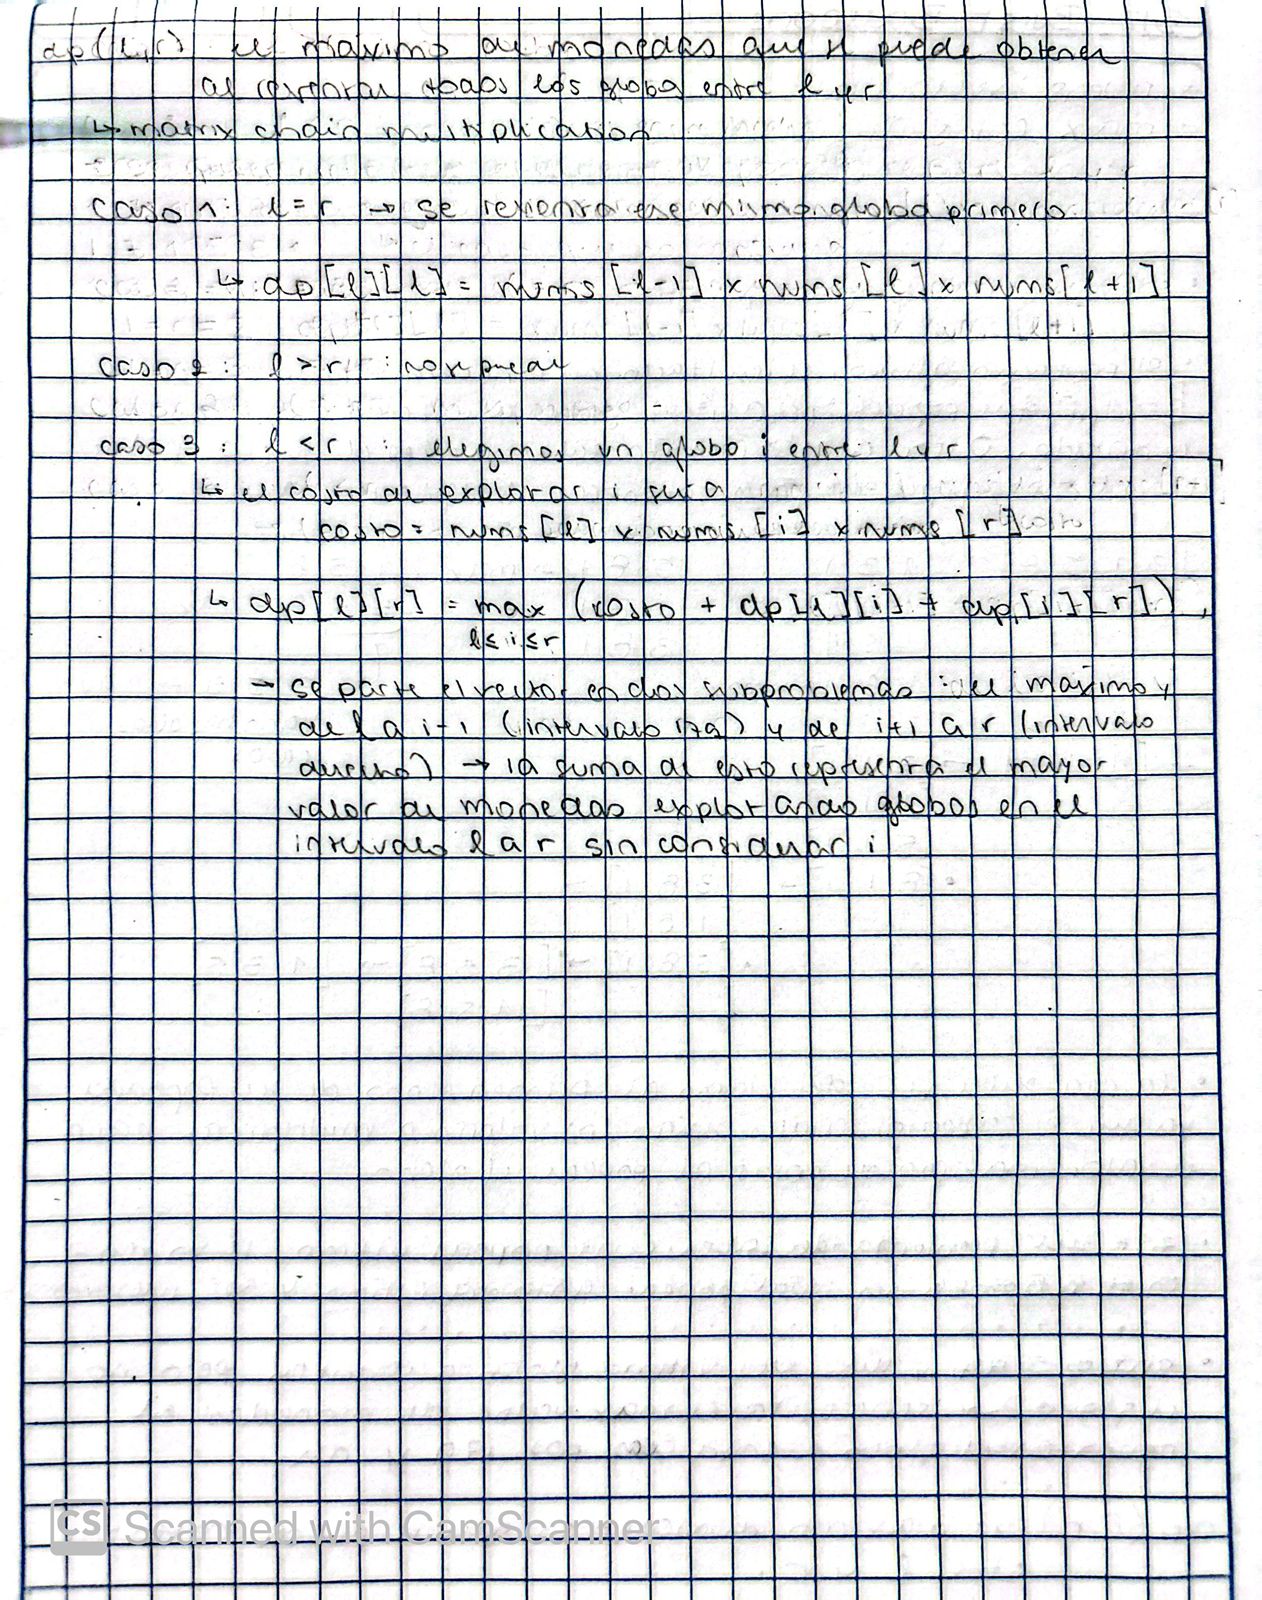 dp(l,r) el maximo de monedas que se puede obtener
al reventar todos los globos entre l y r
↳ matrix chain multiplication
caso 1: l = r → se revienta ese mismo globo primero
↳ dp[l][l] = nums[l-1] x nums[l] x nums[l+1]
caso 2: l > r : no se puede
caso 3: l < r : elegimos un globo i entre l y r
↳ el costo de explorar i será
costo = nums[l] x nums[i] x nums[r]
↳ dp[l][r] = max (costo + dp[l][i] + dp[i][r])
l≤i≤r
→ se parte el vector en dos subproblemas: el maximo
de l a i-1 (intervalo izq) y de i+1 a r (intervalo
derecho) → la suma de esto representa el mayor
valor de monedas explotando globos en el
intervalo l a r sin considerar i
CS Scanned with CamScanner